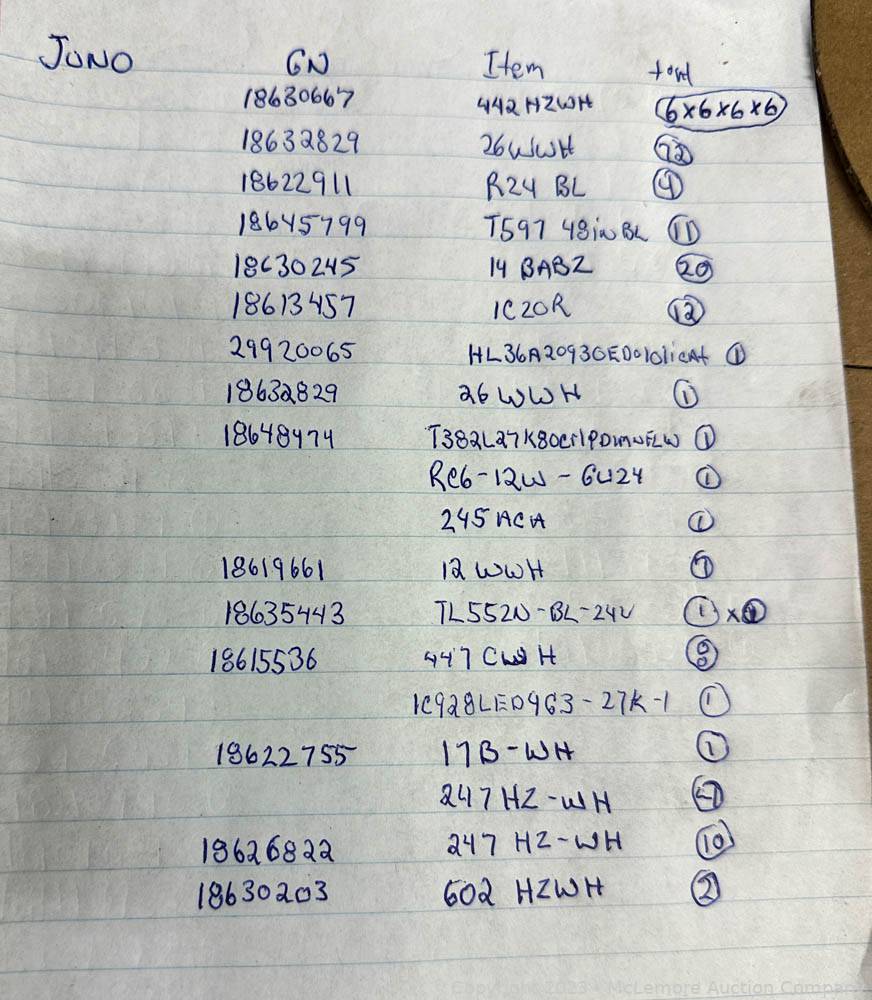 JUNO GN Item total
18630667 442HZWH 6x6x6x6
18632829 26WWH 72
18622911 R24 BL 4
18645799 T597 48in BL 11
18630245 14 BABZ 20
18613457 IC20R 12
29920065 1
18632829 26 WWH 1
18648474 1
RC6-12W-GU24 1
245 ACA 1
18619661 12 WWH
18635443 TL552N-BL-24V 1 x
18615536 447 CWH 8
IC928LED9G3-27K-1 1
18622755 17B-WH 1
247 HZ-WH
18626822 247 HZ-WH 10
18630203 602 HZWH 2
© Copyright 2023 - McLemore Auction Company